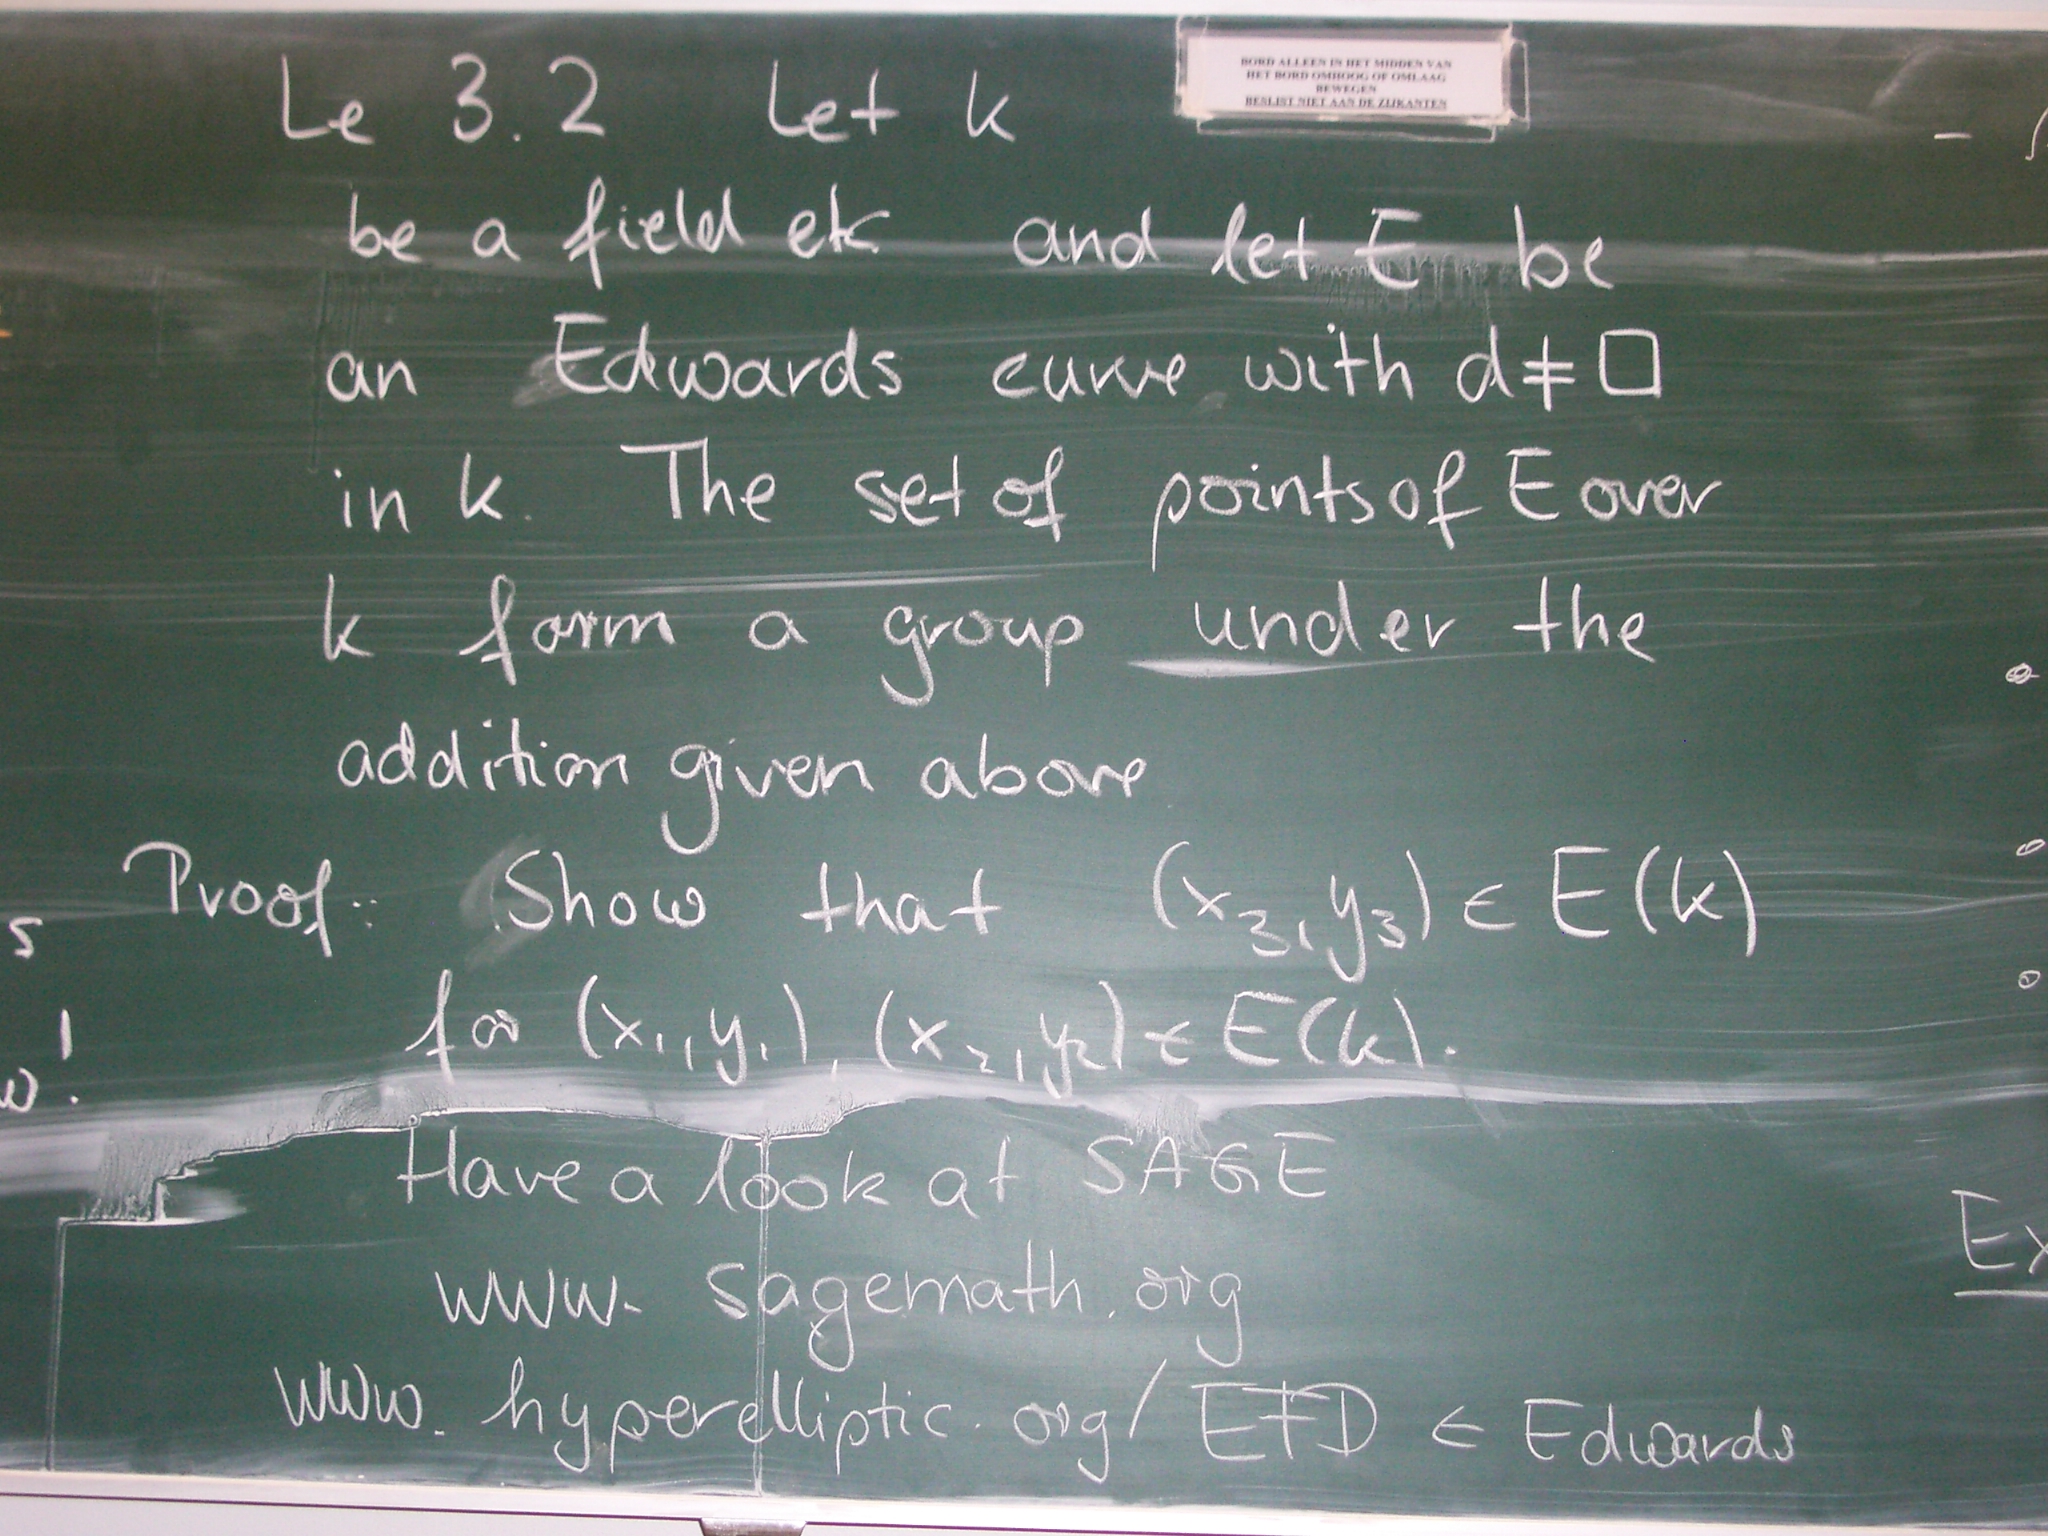 BORD ALLEEN IN HET MIDDEN VAN
HET BORD OMHOOG OF OMLAAG
BEWEGEN
BESLIST NIET AAN DE ZIJKANTEN
Le 3.2 Let k
be a field etc and let E be
an Edwards curve with d ≠ □
in k. The set of points of E over
k form a group under the
addition given above
Proof: Show that (x₃, y₃) ∈ E(k)
for (x₁, y₁), (x₂, y₂) ∈ E(k).
Have a look at SAGE
www. sagemath.org
www. hyperelliptic.org/EFD ∈ Edwards
s
!
w.
Ex